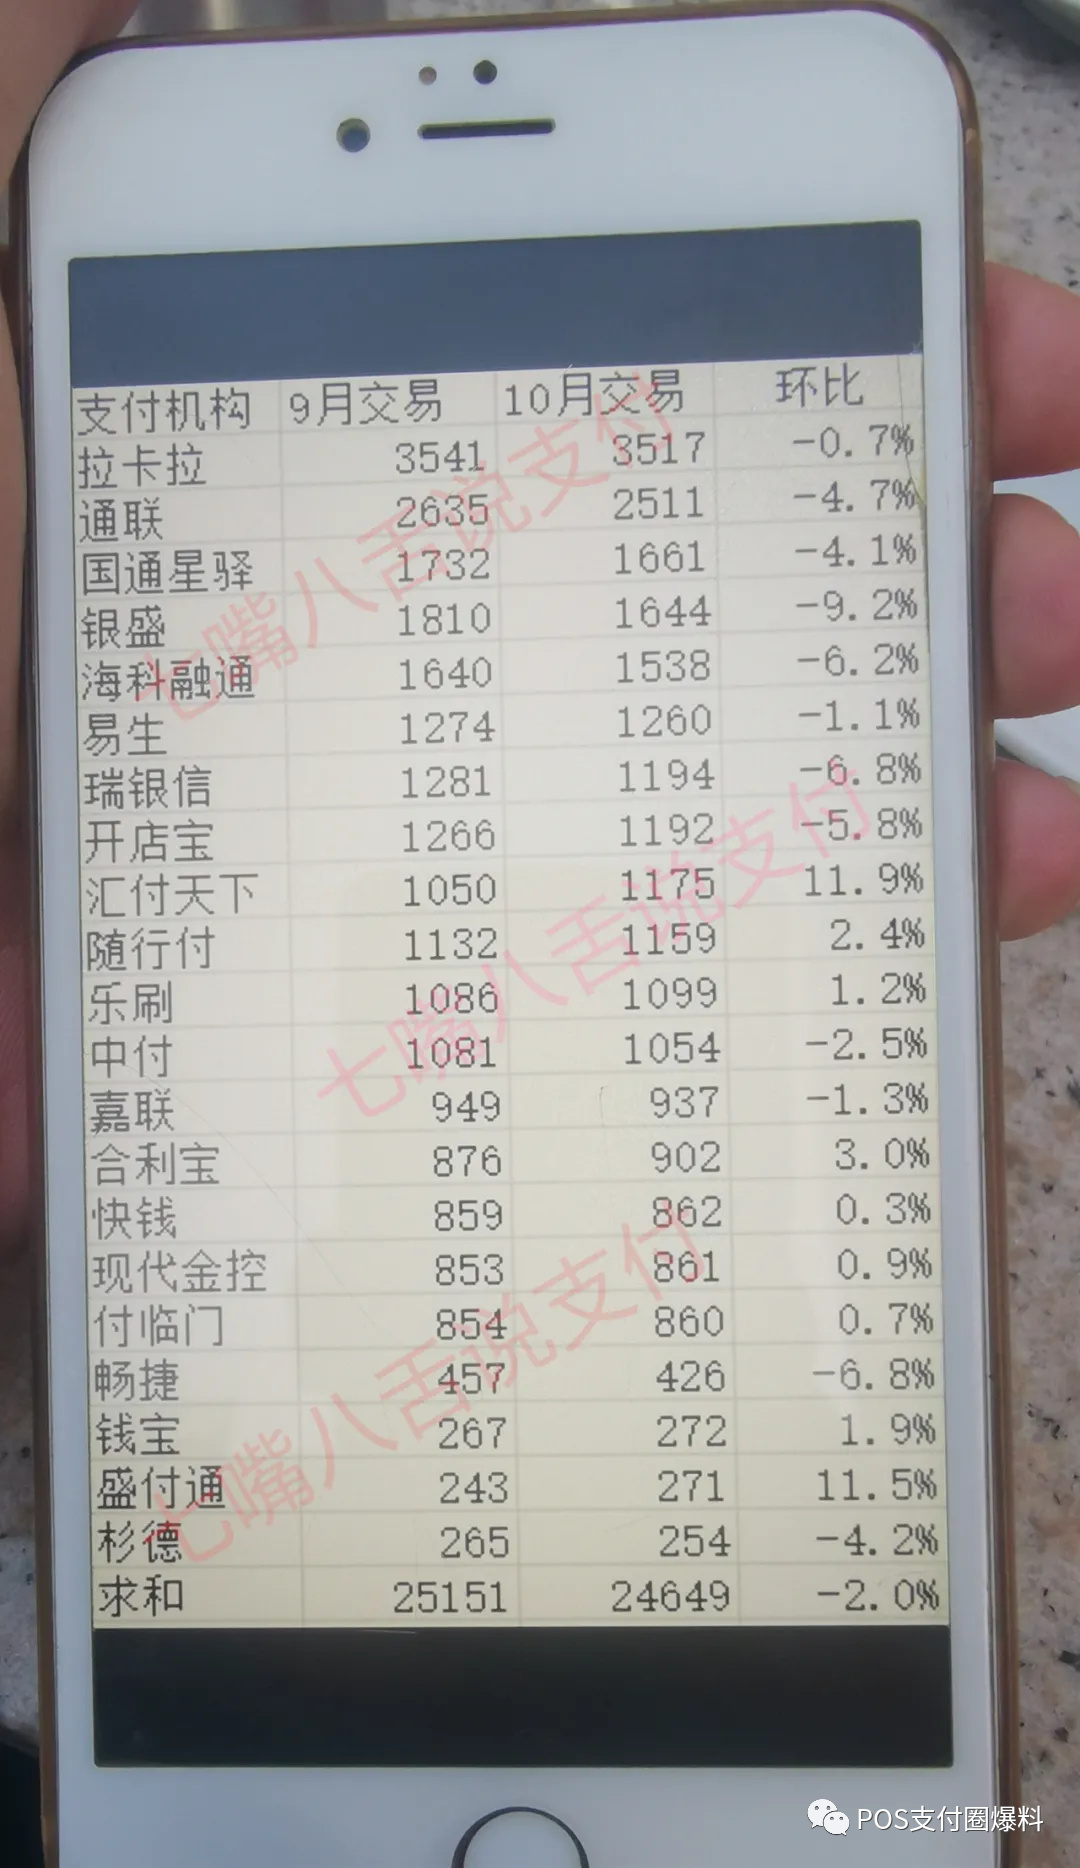 支付机构 9月交易 10月交易 环比
拉卡拉 3541 3517 -0.7%
通联 2635 2511 -4.7%
国通星驿 1732 1661 -4.1%
银盛 1810 1644 -9.2%
海科融通 1640 1538 -6.2%
易生 1274 1260 -1.1%
瑞银信 1281 1194 -6.8%
开店宝 1266 1192 -5.8%
汇付天下 1050 1175 11.9%
随行付 1132 1159 2.4%
乐刷 1086 1099 1.2%
中付 1081 1054 -2.5%
嘉联 949 937 -1.3%
合利宝 876 902 3.0%
快钱 859 862 0.3%
现代金控 853 861 0.9%
付临门 854 860 0.7%
畅捷 457 426 -6.8%
钱宝 267 272 1.9%
盛付通 243 271 11.5%
杉德 265 254 -4.2%
求和 25151 24649 -2.0%
七嘴八舌说支付
七嘴八舌说支付
七嘴八舌说支付
POS支付圈爆料